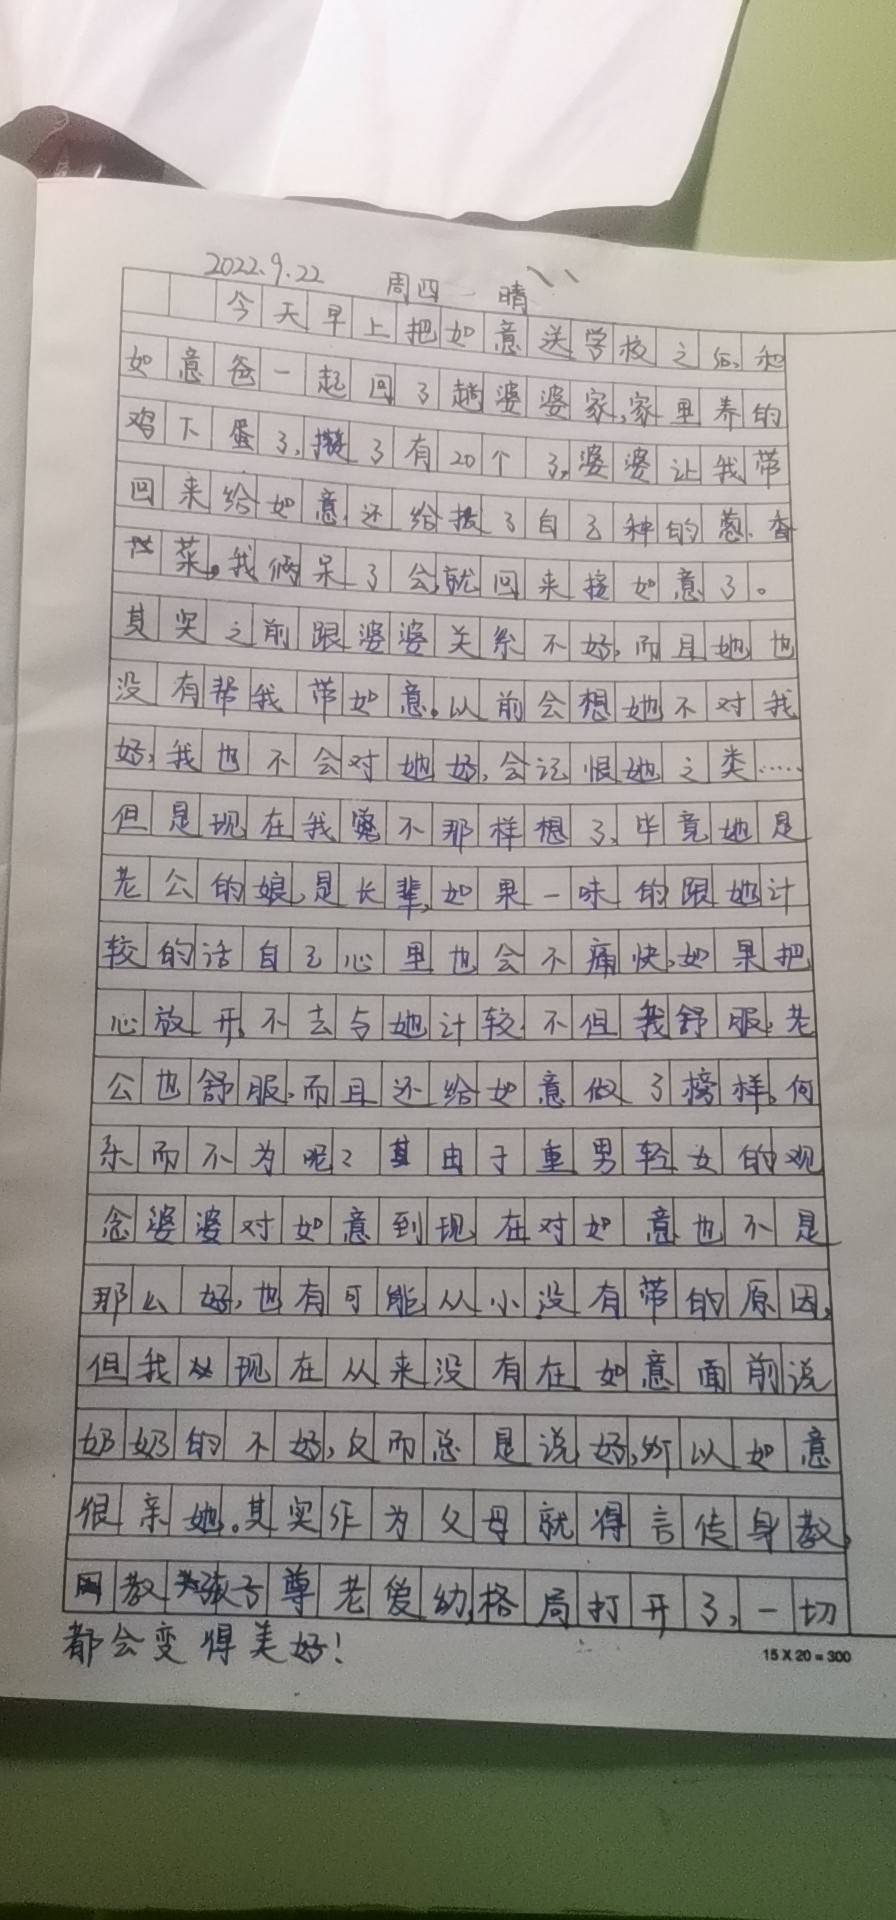 2022.9.22 周四 晴
今天早上把如意送学校之后,和
如意爸一起回了趟婆婆家,家里养的
鸡下蛋了,攒了有20个了,婆婆让我带
回来给如意,还给拔了自己种的葱、香
菜。我俩呆了会,就回来接如意了。
其实之前跟婆婆关系不好,而且她也
没有帮我带如意。以前会想她不对我
好,我也不会对她好,会记恨她之类……
但是现在我不那样想了,毕竟她是
老公的娘,是长辈,如果一味的跟她计
较的话自己心里也会不痛快,如果把
心放开,不去与她计较,不但我舒服,老
公也舒服,而且还给如意做了榜样,何
乐而不为呢?其由于重男轻女的观
念婆婆对如意到现在对如意也不是
那么好,也有可能从小没有带的原因,
但我现在从来没有在如意面前说
奶奶的不好,反而总是说好,所以如意
很亲她。其实作为父母就得言传身教,
教孩子尊老爱幼,格局打开了,一切
都会变得美好!
15X20=300